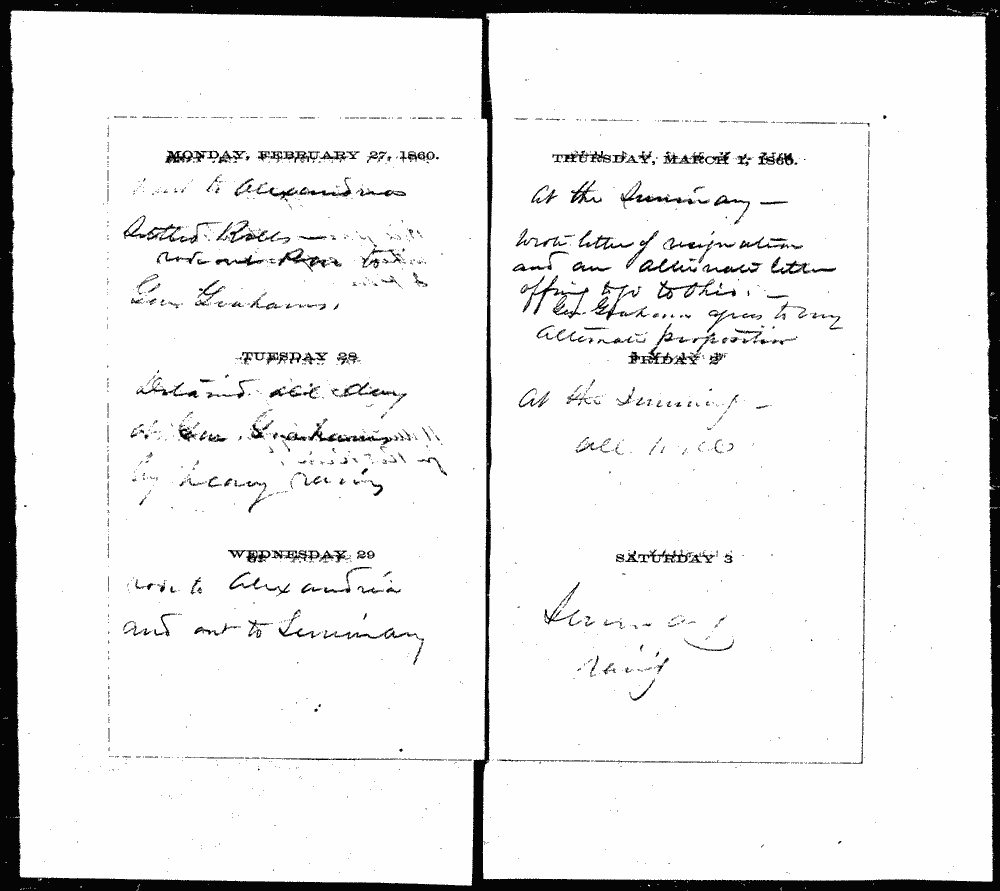 MONDAY, FEBRUARY 27, 1860.
Went to Alexandria
Settled Bills —
rode out to
Gov Grahams.
TUESDAY 28
Detained all day
at Gov. Grahams
by heavy rains
WEDNESDAY 29
rode to Alexandria
and out to Seminary
THURSDAY, MARCH 1, 1860.
At the Seminary —
Wrote letter of resignation
and an alternate letter
offering to go to Ohio. —
Gov Graham agrees to my
alternate proposition
FRIDAY 2
At the Seminary —
all well
SATURDAY 3
Seminary
rainy